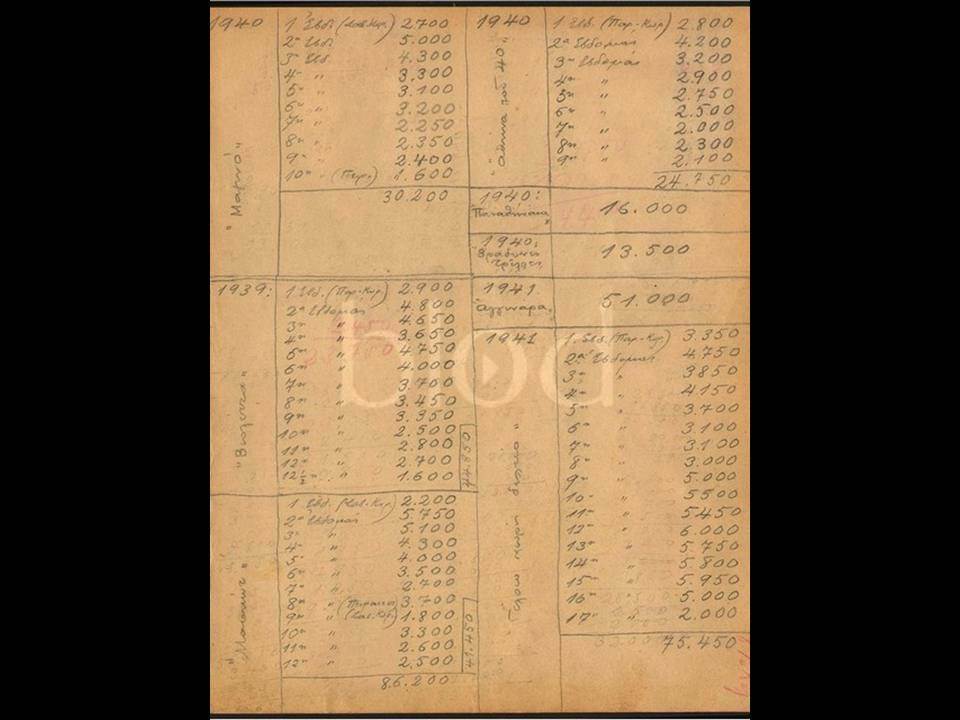 1940
1 Ἑβδ. (Σαβ-Κυρ.) 2.700
2α Ἑβδ. 5.000
3η Ἑβδ. 4.300
4η " 3.300
5η " 3.100
6η " 3.200
7η " 2.250
8η " 2.350
9η " 2.400
10η " 1.600
30.200
1939:
1 Ἑβδ. (Παρ-Κυρ) 2.900
2α Ἑβδομὰς 4.800
3η " 4.650
4η " 3.650
5η " 4.750
6η " 4.000
7η " 3.700
8η " 3.450
9η " 3.350
10η " 2.500
11η " 2.800
12η " 2.700
12½ " 1.600
44.850
"Βιολέττα"
1 Ἑβδ. (Σαβ-Κυρ) 2.200
2α Ἑβδομὰς 5.750
3η " 5.100
4η " 4.300
5η " 4.000
6η " 3.500
7η " 2.700
8η " 3.700
9η " (Σαβ-Κυρ) 1.800
10η " 3.300
11η " 2.600
12η " 2.500
41.450
86.200
1940
"Ἀθήνα τοῦ 40"
1 Ἑβδ. (Παρ-Κυρ) 2.800
2α Ἑβδομὰς 4.200
3η Ἑβδομὰς 3.200
4η " 2.900
5η " 2.750
6η " 2.500
7η " 2.000
8η " 2.300
9η " 2.100
24.750
1940:
"Παναθήναια" 16.000
1940: 13.500
1941
51.000
1941
1. Ἑβδ. (Παρ-Κυρ) 3.350
2α Ἑβδομὰς 4.750
3η " 3850
4η " 4150
5η " 3.700
6η " 3.100
7η " 3.100
8η " 3.000
9η " 5.000
10η " 5500
11η " 5450
12η " 6.000
13η " 5.750
14η " 5.800
15η " 5.950
16η " 5.000
17η " 2.000
75.450
blod